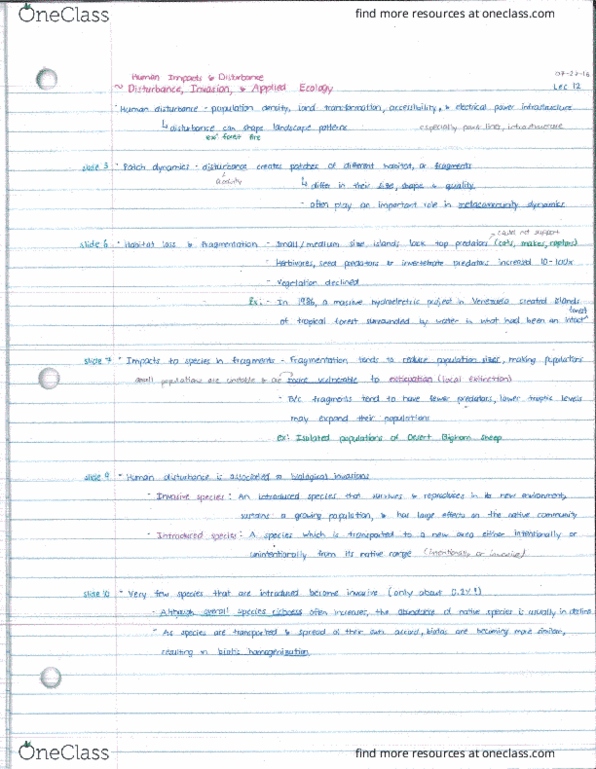 OneClass
find more resources at oneclass.com
Human Impacts & Disturbance
07-22-16
~ Disturbance, Invasion, & Applied Ecology
Lec 12
• Human disturbance - population density, land transformation, accessibility, & electrical power infrastructure
↳ disturbance can shape landscape patterns
especially power lines, infrastructure
ex: forest fire
slide 3 • Patch dynamics - disturbance creates patches of different habitat, or fragments
↳ differ in their size, shape & quality
- often play an important role in metacommunity dynamics
could not support
slide 6 • Habitat loss & fragmentation - Small/medium size islands lack top predators (cats, snakes, raptors)
- Herbivores, seed predators & invertebrate predators increased 10-100x
- Vegetation declined
Ex: - In 1986, a massive hydroelectric project in Venezuela created islands
of tropical forest surrounded by water in what had been an intact forest
slide 7 • Impacts to species in fragments - Fragmentation tends to reduce population sizes, making populations
small populations are unstable & are more vulnerable to extirpation (local extinction)
- B/c fragments tend to have fewer predators, lower trophic levels
may expand their populations
ex: Isolated populations of Desert Bighorn Sheep
slide 9 • Human disturbance is associated = biological invasions
• Invasive species: An introduced species that survives & reproduces in its new environment,
sustains a growing population, & has large effects on the native community
• Introduced species: A species which is transported to a new area either intentionally or
unintentionally from its native range
slide 10 • Very few species that are introduced become invasive (only about 0.2%!)
- Although overall species richness often increases, the abundance of native species is usually in decline
• As species are transported & spread of their own accord, biotas are becoming more similar,
resulting in biotic homogenization
OneClass
find more resources at oneclass.com